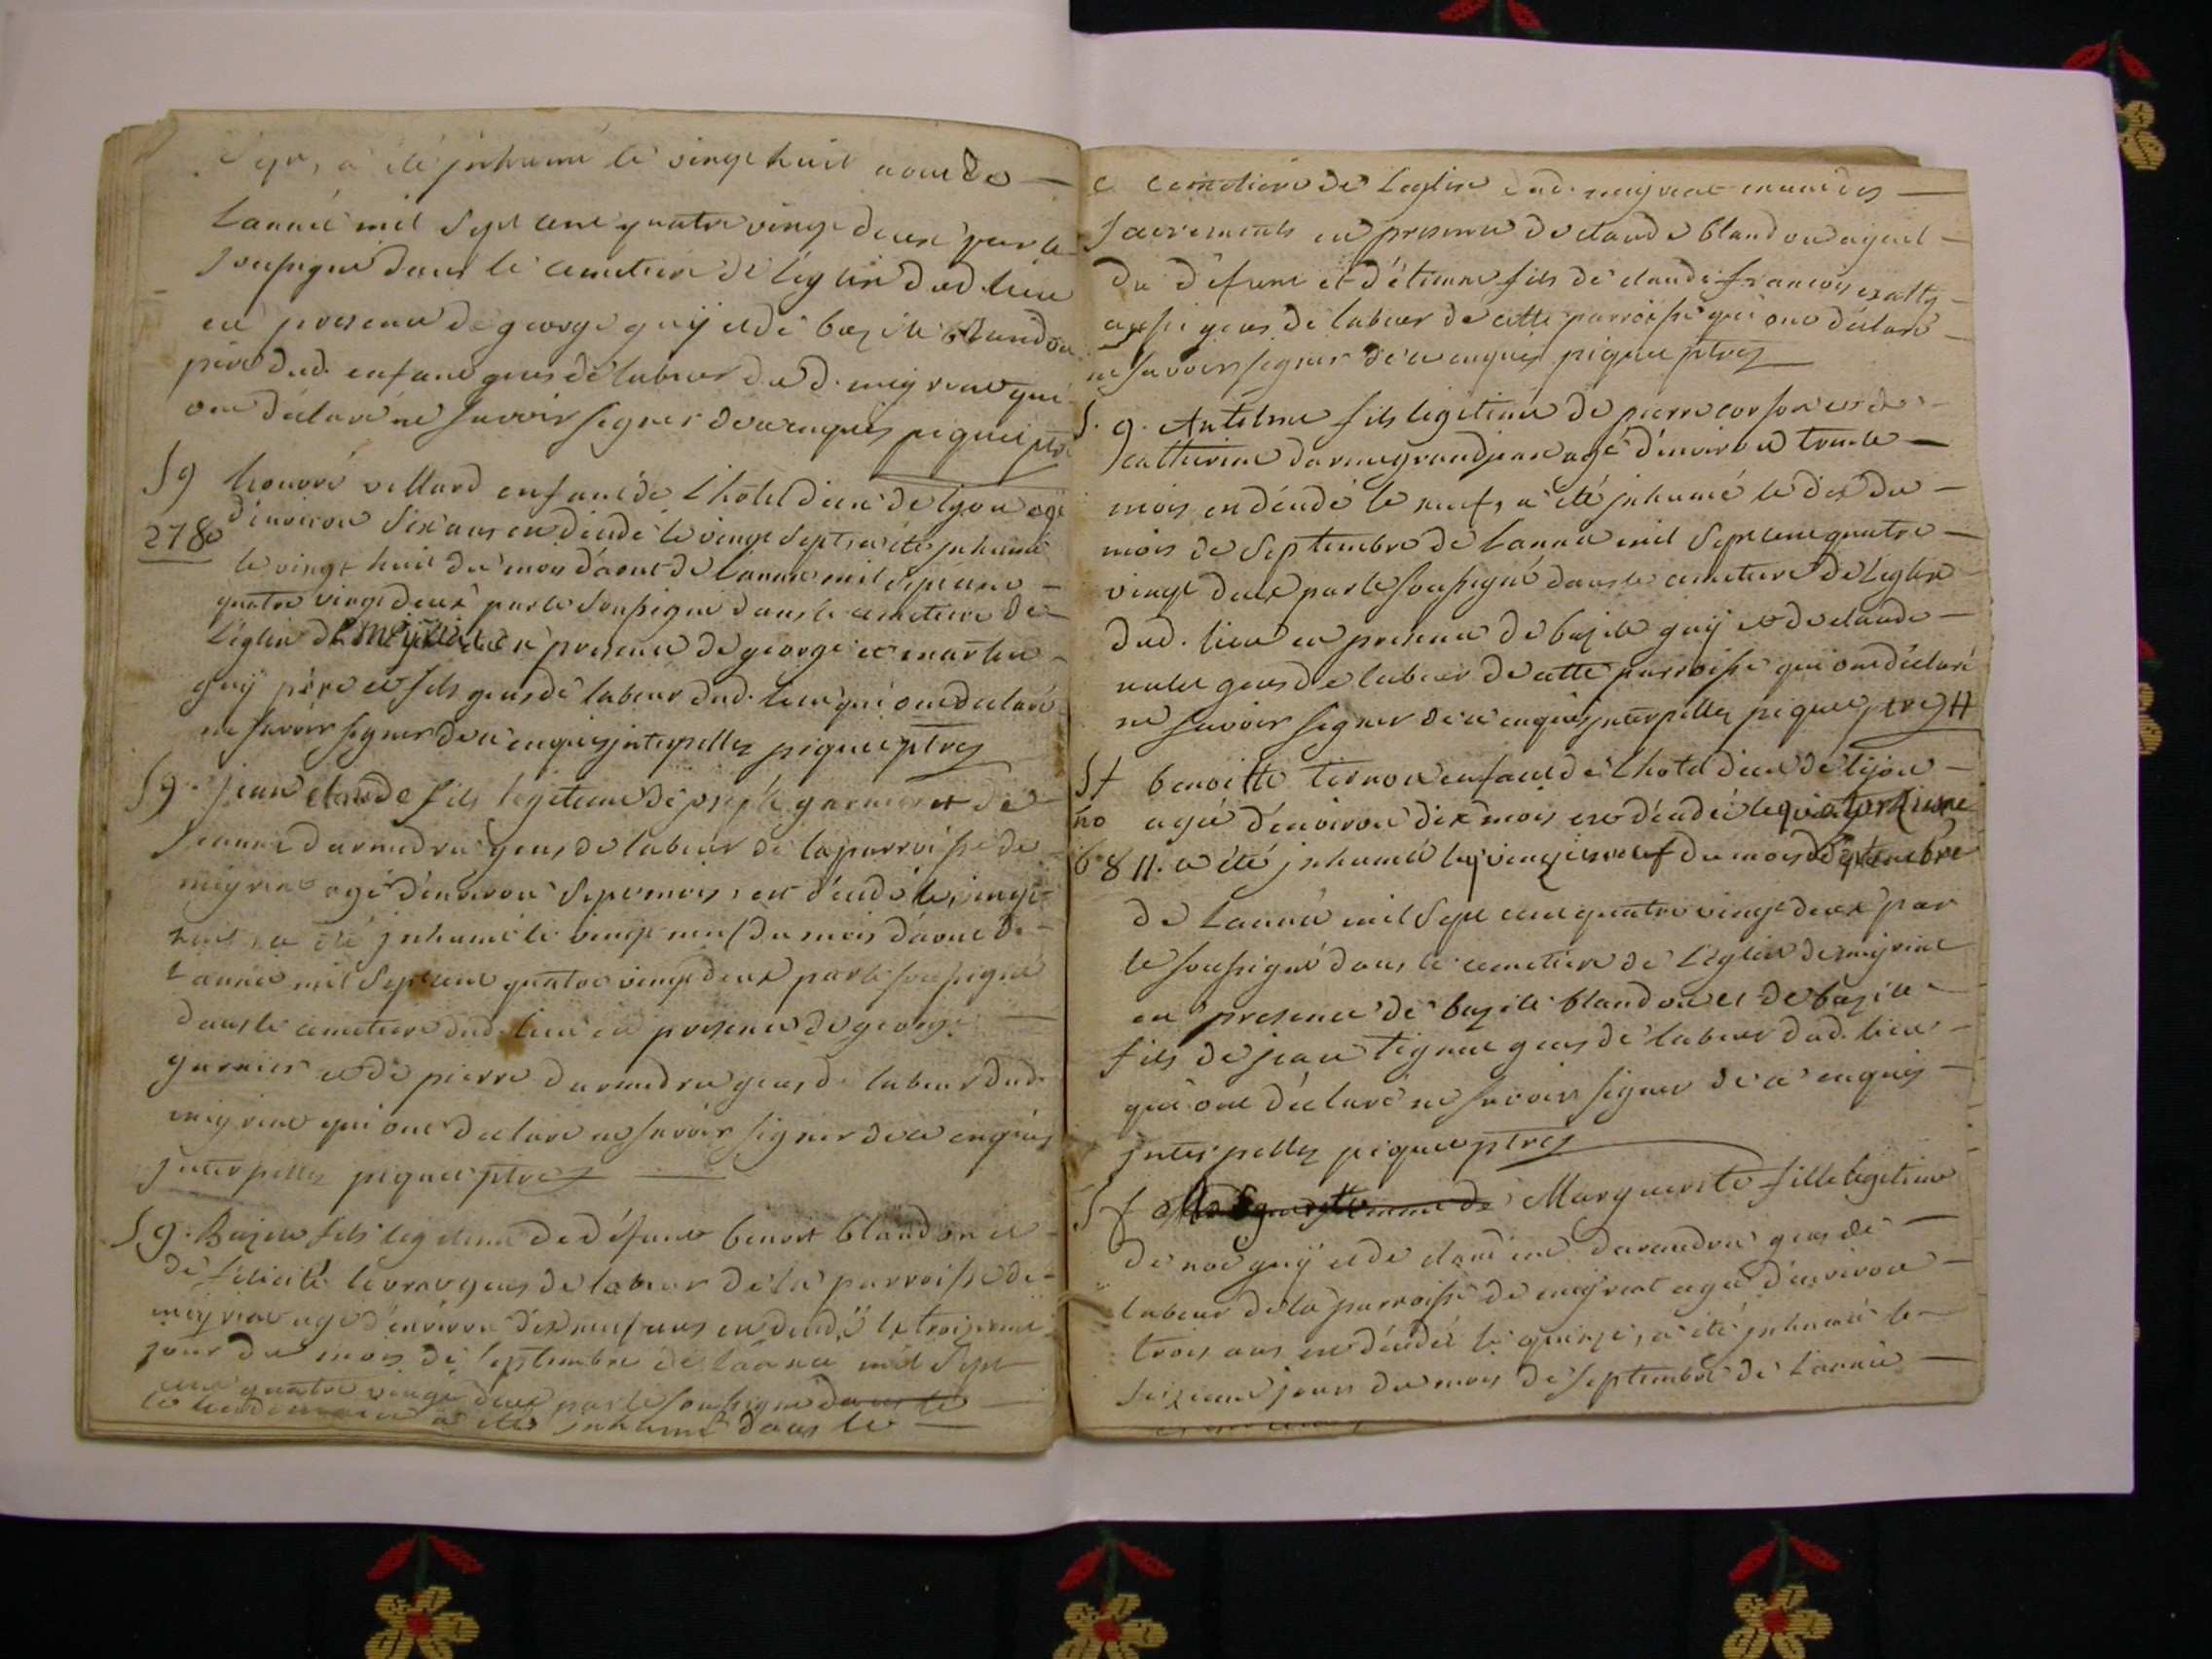 Sept, a été jnhumé le vingt huit aout de
Lannée mil Sept cent quatre vingt deux par le
soussigné dans le cemetiere de Léglise dud. lieu
en presence de george guÿ et de bazile blandon
père dud. enfant gens de labeur dud. meyriat qui
ont déclaré ne savoir signer de ce enquis piquet ptre
Sg honoré villard enfant de Lhotel dieu de lyon agé
d'environ six ans en décédé le vingt Sept, a été jnhumé
2780
le vingt huit du mois d'aout de Lannée mil Sept cent
quatre vingt deux par le soussigné dans le cemetiere de
Léglise de meyriat en presence de george et martin
guÿ père et fils gens de labeur dud. lieu qui ont déclaré
ne savoir signer de ce enquis jnterpellez piquet ptre
Sg. jean claude fils légitime de joseph garnier et de
jeanne darmedru gens de labeur de la parroisse de
meyriat agé d'environ Sept mois, est décédé le vingt
huit, a été jnhumé le vingt neuf du mois d'aout de
Lannée mil Sept cent quatre vingt deux par le soussigné
dans le cemetiere dud. lieu en presence de george
garnier et de pierre darmedru gens de labeur dud.
meyriat qui ont déclaré ne savoir signer de ce enquis
jnterpellez piquet ptre
Sg. Bazile fils legitime de défunt benoit blandon et
de felicité gens de labeur de la parroisse de
meyriat agé d'environ dixneuf ans en décédé le troizieme
jour du mois de septembre de lannée mil Sept
cent quatre vingt deux par le soussigné dans le
le lendemain a été jnhumé dans le
cemetiere de Léglise dud. meyriat muni des
Sacrements en presence de claude blandon ayeul
du défunt et d'étienne fils de claude françois
aussi gens de labeur de cette parroisse qui ont déclaré
ne savoir signer de ce enquis piquet ptre
S. g. Antelme fils legitime de pierre corson et de
catherine darmegrandjean agé d'environ trente
mois en décédé le neuf, a été jnhumé le dix du
mois de Septembre de Lannée mil Sept cent quatre
vingt deux par le soussigné dans le cemetiere de Léglise
dud. lieu en presence de bazile guÿ et de claude
gens de labeur de cette parroisse qui ont déclaré
ne savoir signer de ce enquis jnterpellez piquet ptre
Sf benoitte ternon enfant de Lhotel dieu de lyon
no agée d'environ dix mois est décédée le quatorzieme
6811. a été jnhumée le du mois de Septembre
de Lannée mil Sept cent quatre vingt deux par
le soussigné dans le cemetiere de Léglise de meyriat
en presence de bazile blandon et de bazile
fils de jean tignat gens de labeur dud. lieu
qui ont déclaré ne savoir signer de ce enquis
jnterpellez piquet ptre
Sf Marguerite fille legitime
de noé guÿ et de claudine darmedru gens de
labeur de la parroisse de meyriat agée d'environ
trois ans est décédée le quinze, a été jnhumée le
seizieme jour du mois de septembre de Lannée